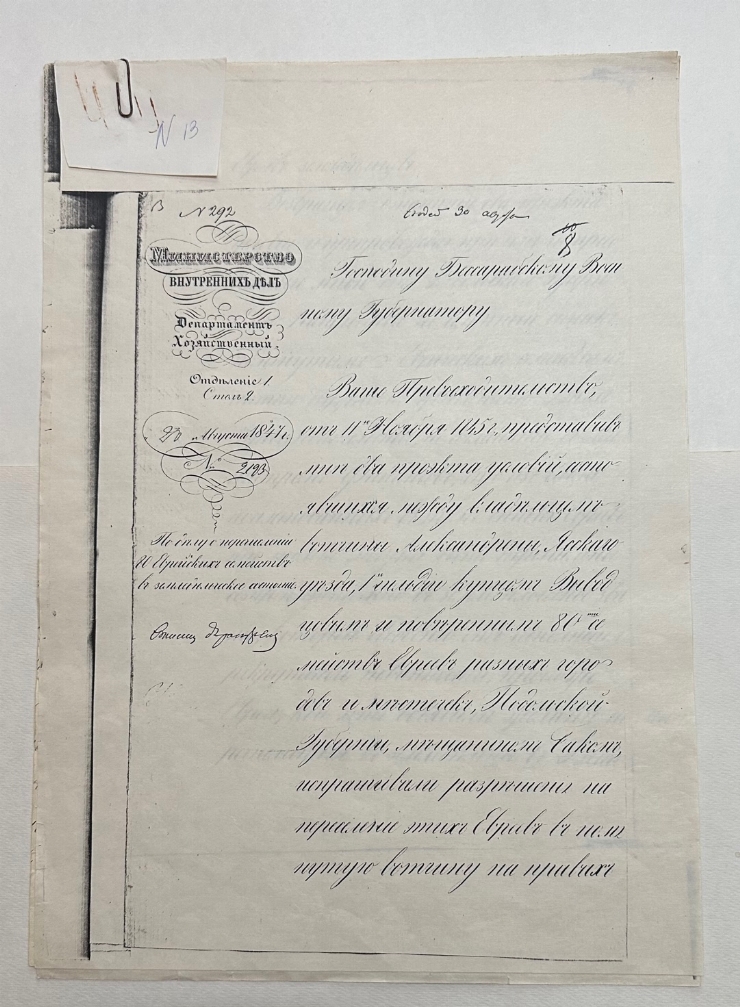 N 13
N 292
30
8
МИНИСТЕРСТВО
ВНУТРЕННИХЪ ДѢЛЪ
Департаментъ
Хозяйственный
Отдѣленіе 1
Столъ 2
Августа 1847 г.
№ 2193
По дѣлу о перечисленіи
80 Еврейскихъ семействъ
въ земледѣльческое состояніе
Господину Бессарабскому Воен
ному Губернатору
Ваше Превосходительство,
отъ 11го Ноября 1845 г, представив
ши два проэкта условій, состо
явшихся между владѣльцемъ
вотчины Александрены, Ясскаго
уѣзда, 1й гильдіи купцомъ
цовымъ и повѣреннымъ 80ти се
мействъ Евреевъ разныхъ горо
довъ и мѣстечекъ, Подольской
Губерніи, мѣщаниномъ
испрашивали разрѣшенія на
переселеніе этихъ Евреевъ въ помя
нутую вотчину на правахъ